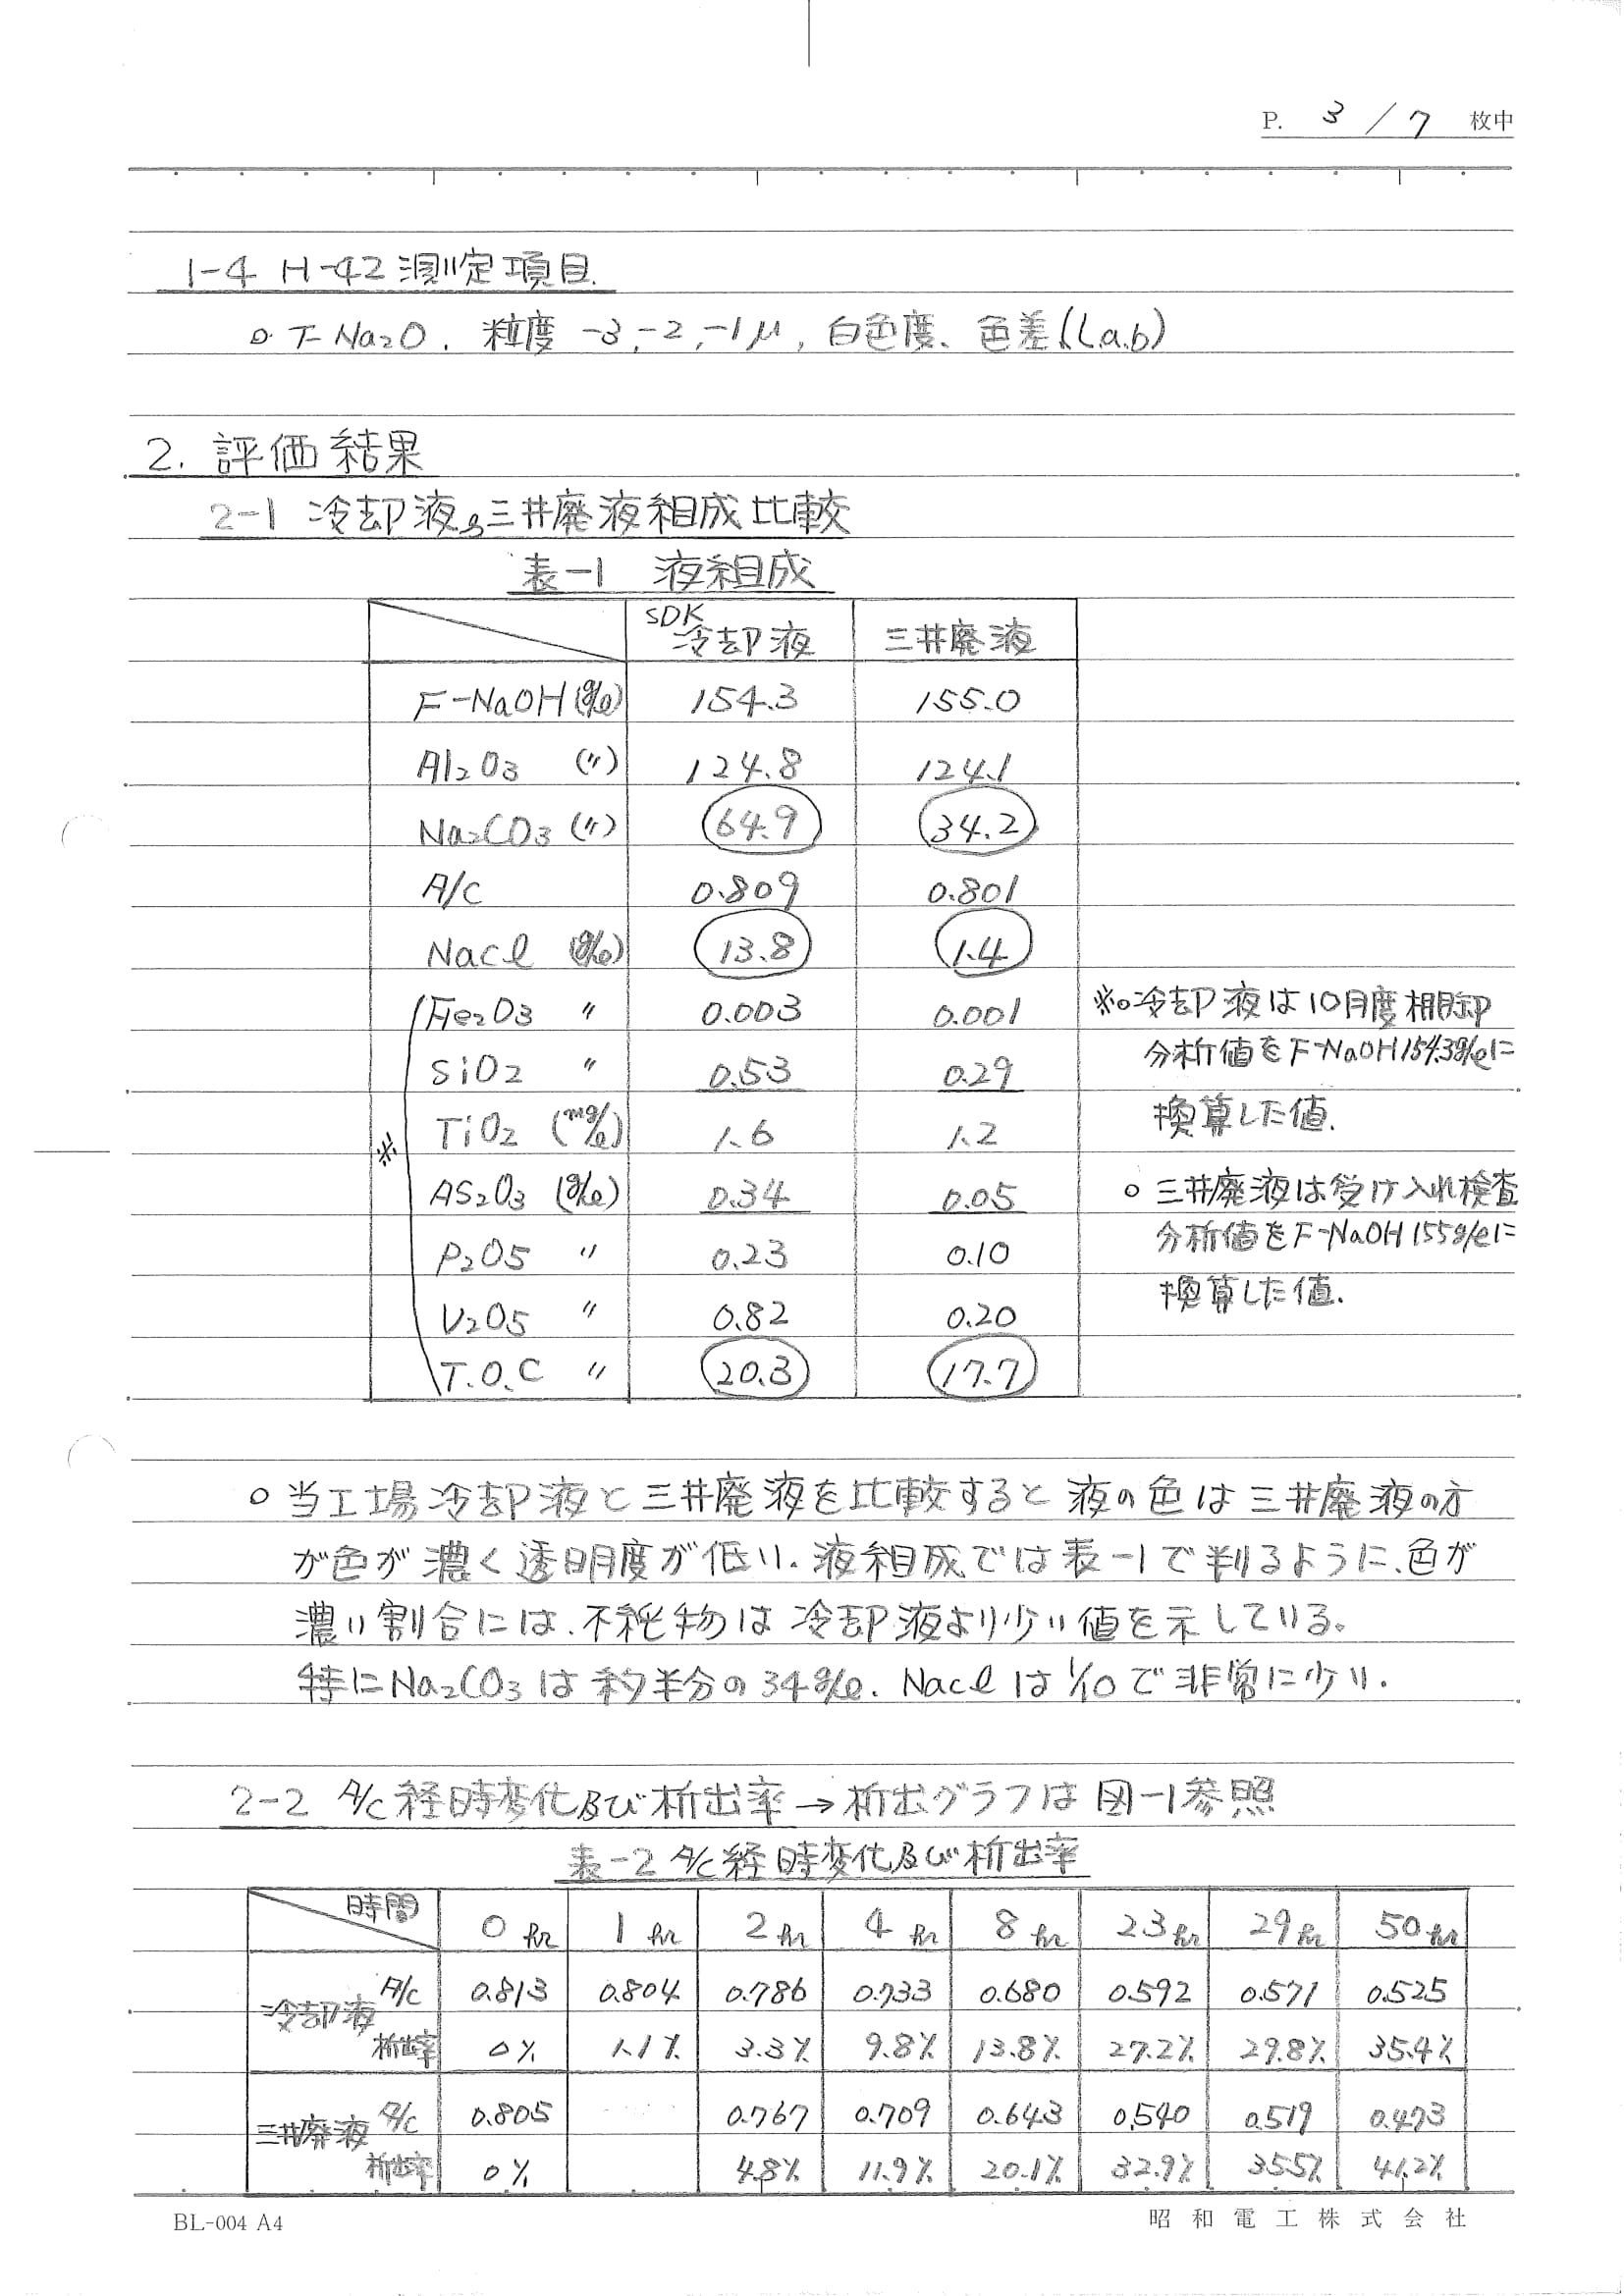 P. 3 / 7 枚中
1-4 H-42 測定項目.
○ T-Na₂O. 粒度 -3, -2, -1μ, 白色度、色差(L.a.b)
2. 評価結果
2-1 冷却液、三井廃液組成比較
表-1 液組成
SDK
冷却液 三井廃液
F-NaOH (g/ℓ) 154.3 155.0
Al₂O₃ (〃) 124.8 124.1
Na₂CO₃ (〃) 64.9 34.2
A/C 0.809 0.801
NaCl (g/ℓ) 13.8 1.4
Fe₂O₃ 〃 0.003 0.001
SiO₂ 〃 0.53 0.29
※ TiO₂ (mg/ℓ) 1.6 1.2
AS₂O₃ (g/ℓ) 0.34 0.05
P₂O₅ 〃 0.23 0.10
V₂O₅ 〃 0.82 0.20
T.O.C 〃 20.3 17.7
※○冷却液は10月度棚卸
分析値をF-NaOH 154.3g/ℓに
換算した値.
○ 三井廃液は受け入れ検査
分析値をF-NaOH 155g/ℓに
換算した値.
○ 当工場冷却液と三井廃液を比較すると液の色は三井廃液の方
が色が濃く透明度が低い. 液組成では表-1で判るように、色が
濃い割合には、不純物は冷却液より少い値を示している。
特にNa₂CO₃は約半分の34g/ℓ. NaClは1/10で非常に少い.
2-2 A/C経時変化及び析出率→析出グラフは図-1参照
表-2 A/C経時変化及び析出率
時間 0 hr 1 hr 2 hr 4 hr 8 hr 23 hr 29 hr 50 hr
冷却液 A/C 0.813 0.804 0.786 0.733 0.680 0.592 0.571 0.525
析出率 0% 1.1% 3.3% 9.8% 13.8% 27.2% 29.8% 35.4%
三井廃液 A/C 0.805 0.767 0.709 0.643 0.540 0.519 0.473
析出率 0% 4.8% 11.9% 20.1% 32.9% 35.5% 41.2%
BL-004 A4 昭和電工株式会社